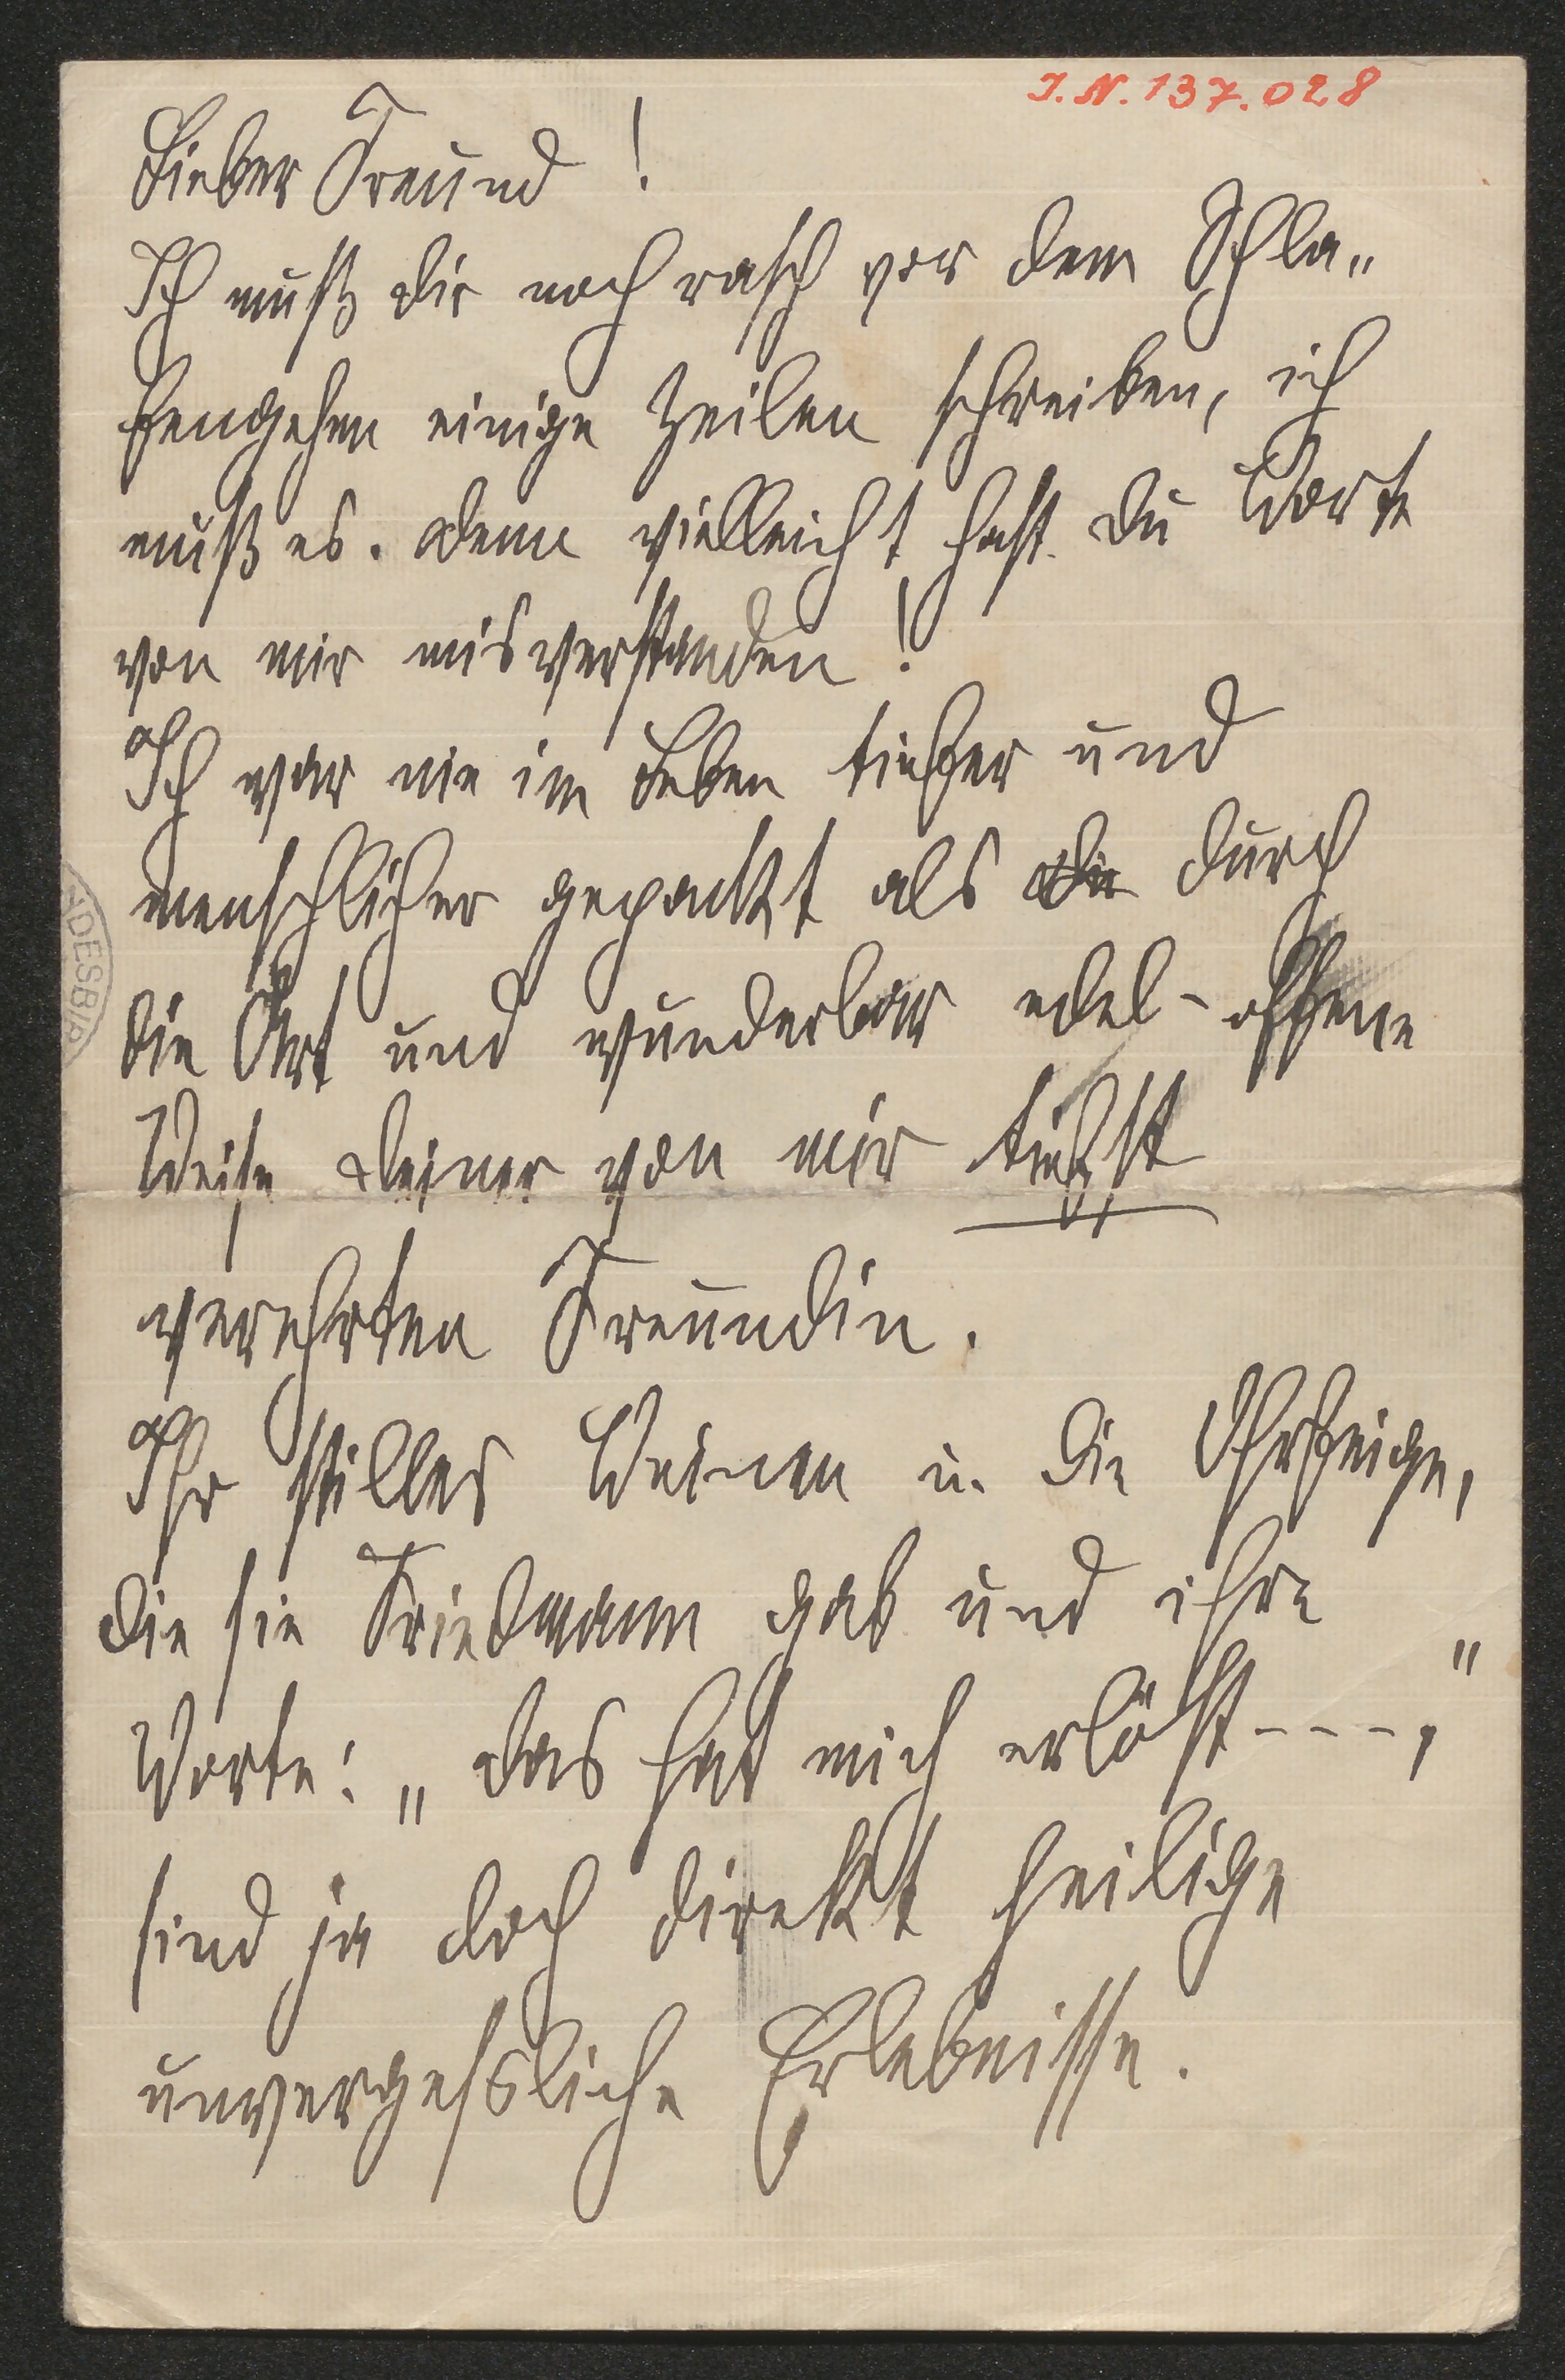 I.N. 137.028
Lieber Freund!
Ich muß dir noch rasch vor dem Schla„
fengehen einige Zeilen schreiben, ich
muß es. denn vielleicht hast du Worte
von mir misverstanden!
Ich war nie im Leben tiefer und
menschlicher gepackt als die durch
die Art und wunderbar edel-offene
Weise deiner von mir tiefst
verehrten Freundin.
Ihr stilles Weinen u. die Ohrfeige,
die sie Friedmann gab und ihre
Worte: „das hat mich erlöst---,"
sind ja doch direkt heilige
unvergessliche Erlebnisse.